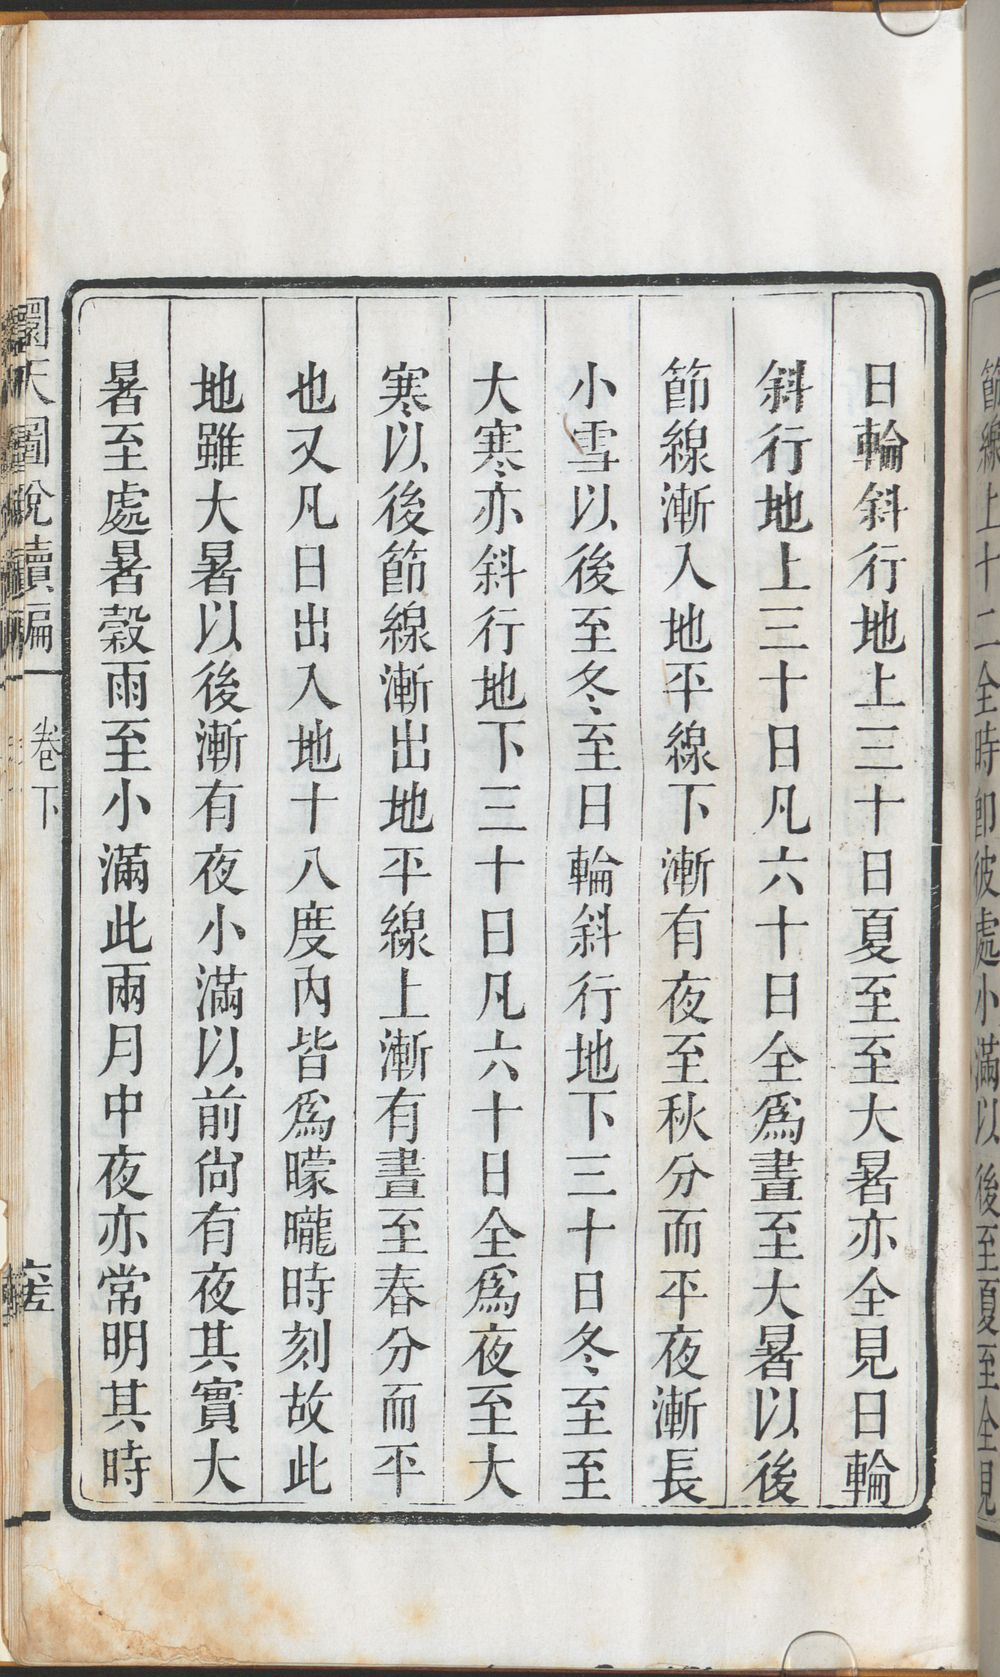 節線上十二全時卽彼處小滿以後至夏至全見
日輪斜行地上三十日夏至至大暑亦全見日輪
斜行地上三十日凡六十日全爲晝至大暑以後
節線漸入地平線下漸有夜至秋分而平夜漸長
小雪以後至冬至日輪斜行地下三十日冬至至
大寒亦斜行地下三十日凡六十日全爲夜至大
寒以後節線漸出地平線上漸有晝至春分而平
也又凡日出入地十八度內皆爲曚曨時刻故此
地雖大暑以後漸有夜小滿以前尙有夜其實大
暑至處暑穀雨至小滿此兩月中夜亦常明其時
圜天圖說續編 卷下